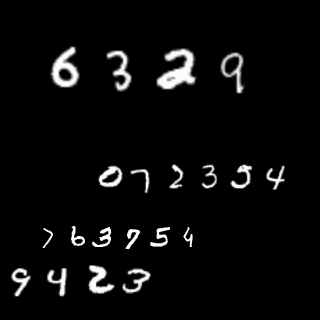 6329
072354
763754
9423